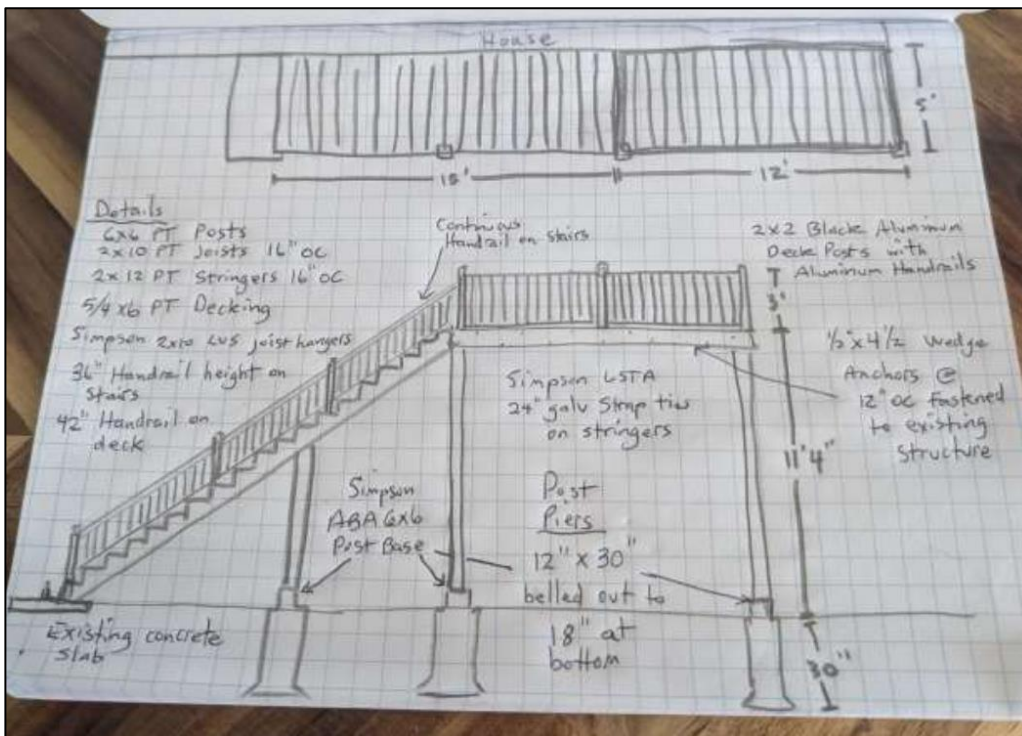 House
5'
15'
12'
Details
6x6 PT Posts
2x10 PT Joists 16" OC
2x12 PT Stringers 16" OC
5/4 x6 PT Decking
Simpson 2x10 LUS joist hangers
36" Handrail height on
Stairs
42" Handrail on
deck
Continuous
Handrail on Stairs
2x2 Black Aluminum
Deck Posts with
Aluminum Handrails
3'
1/2" x 4 1/2 Wedge
Anchors @
12" OC fastened
to existing
Structure
Simpson LSTA
24" galv Strap ties
on stringers
11' 4"
Simpson
ABA 6x6
Post Base
Post
Piers
12" x 30"
belled out to
18" at
bottom
Existing concrete
Slab
30"